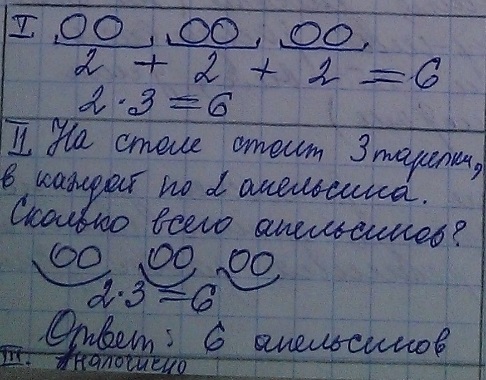 I.
2 + 2 + 2 = 6
2·3=6
II. На столе стоит 3 тарелки,
в каждой по 2 апельсина.
Сколько всего апельсинов?
2·3=6
Ответ: 6 апельсинов
III.